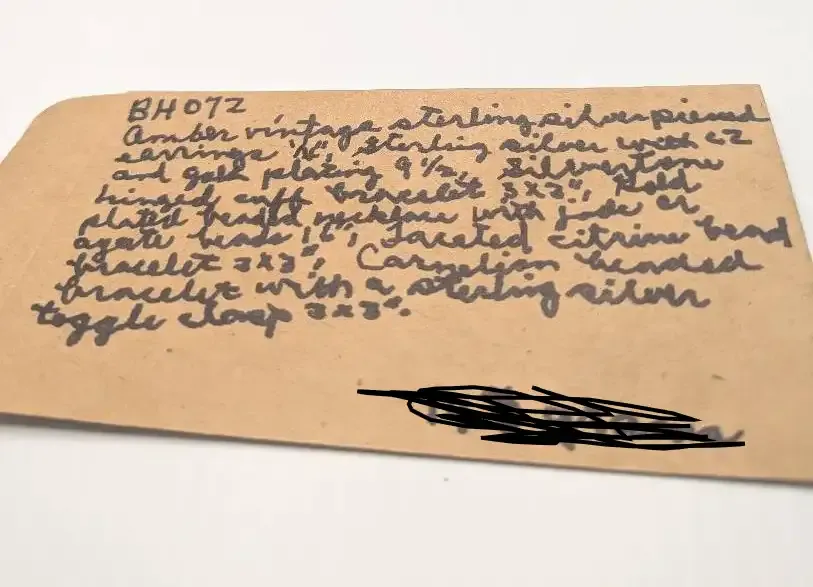 BH072
Amber vintage sterling silver pierced
earrings 1", sterling silver with CZ
and gold plating 9 1/2, Silvertone
hinged cuff bracelet 3x3", Gold
plated beaded necklace with jade or
agate beads 16", Faceted citrine bead
bracelet 3x3", Carnelian beaded
bracelet with a sterling silver
toggle clasp 3x3".